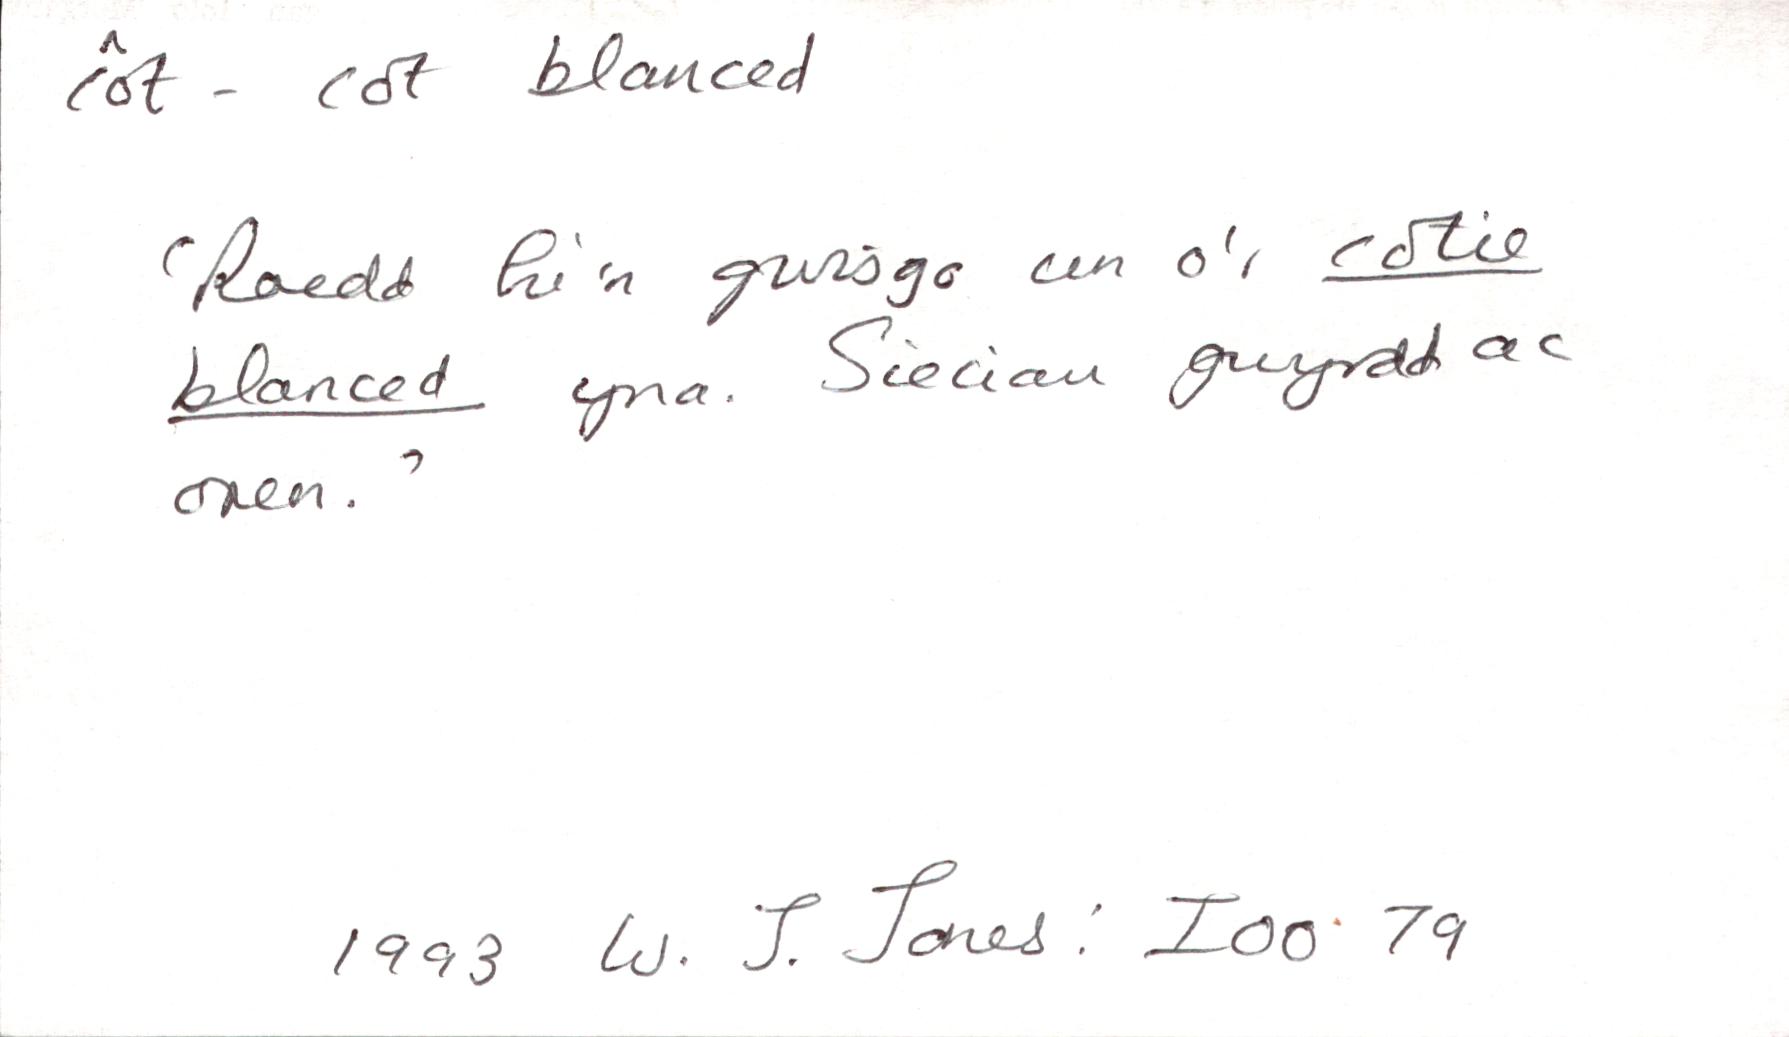 côt - côt blanced
'Roedd hi'n gwisgo un o'r côtie
blanced yna. Sieciau gwyrdd ac
oren.'
1993 W. J. Jones: IOO 79